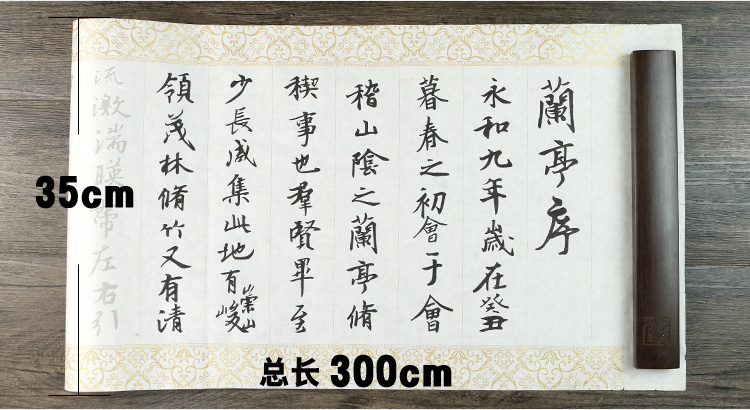 蘭亭序
永和九年歲在癸丑
暮春之初會于會
稽山陰之蘭亭脩
稧事也羣賢畢至
少長咸集此地有崇山峻
領茂林脩竹又有清
流激湍暎帶左右引
35cm
总长 300cm